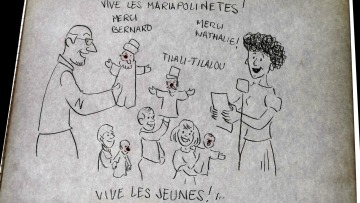 VIVE LES MARIAPOLINETES!
MERCI
BERNARD
MERCI
NATHALIE!
TILALI-TILALOU
VIVE LES JEUNES!...